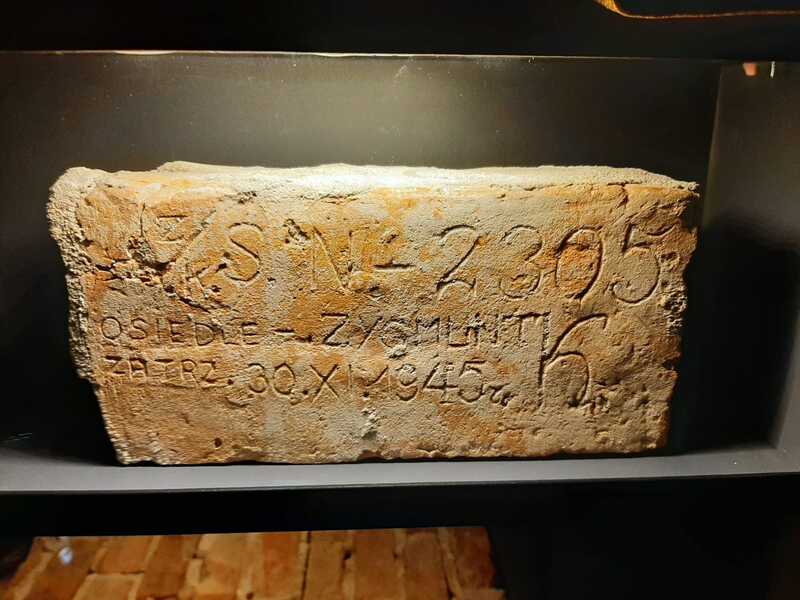 Z/K S. N-2305
OSIEDLE - ZYGMUNT K
ZATRZ. 30.XI.1945r.